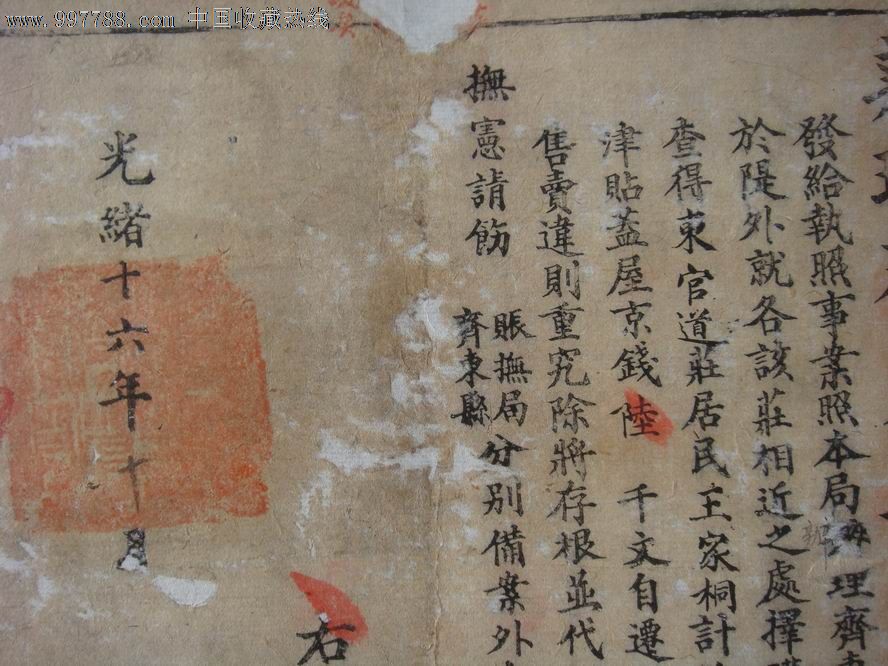 www.997788.com 中国收藏热线
發給執照事案照本局辦理齊
於隄外就各該莊相近之處擇
查得東官道莊居民王家桐計
津貼蓋屋京錢陸千文自遷
售賣違則重究除將存根並代
撫憲請飭
賑撫局
齊東縣
分別備案外
右
光緒十六年十月